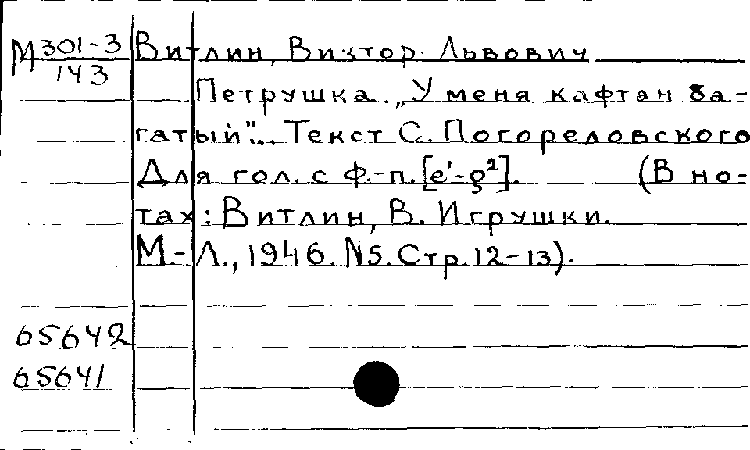 М 301-3/143 Витлин, Виктор Львович
Петрушка. „У меня кафтан ба-
гатый"... Текст С. Погореловского
Для гол. с ф.-п. [e¹-g²]. (В но-
тах: Витлин, В. Игрушки.
М.-Л., 1946. N5. Стр. 12-13).
65642
65641